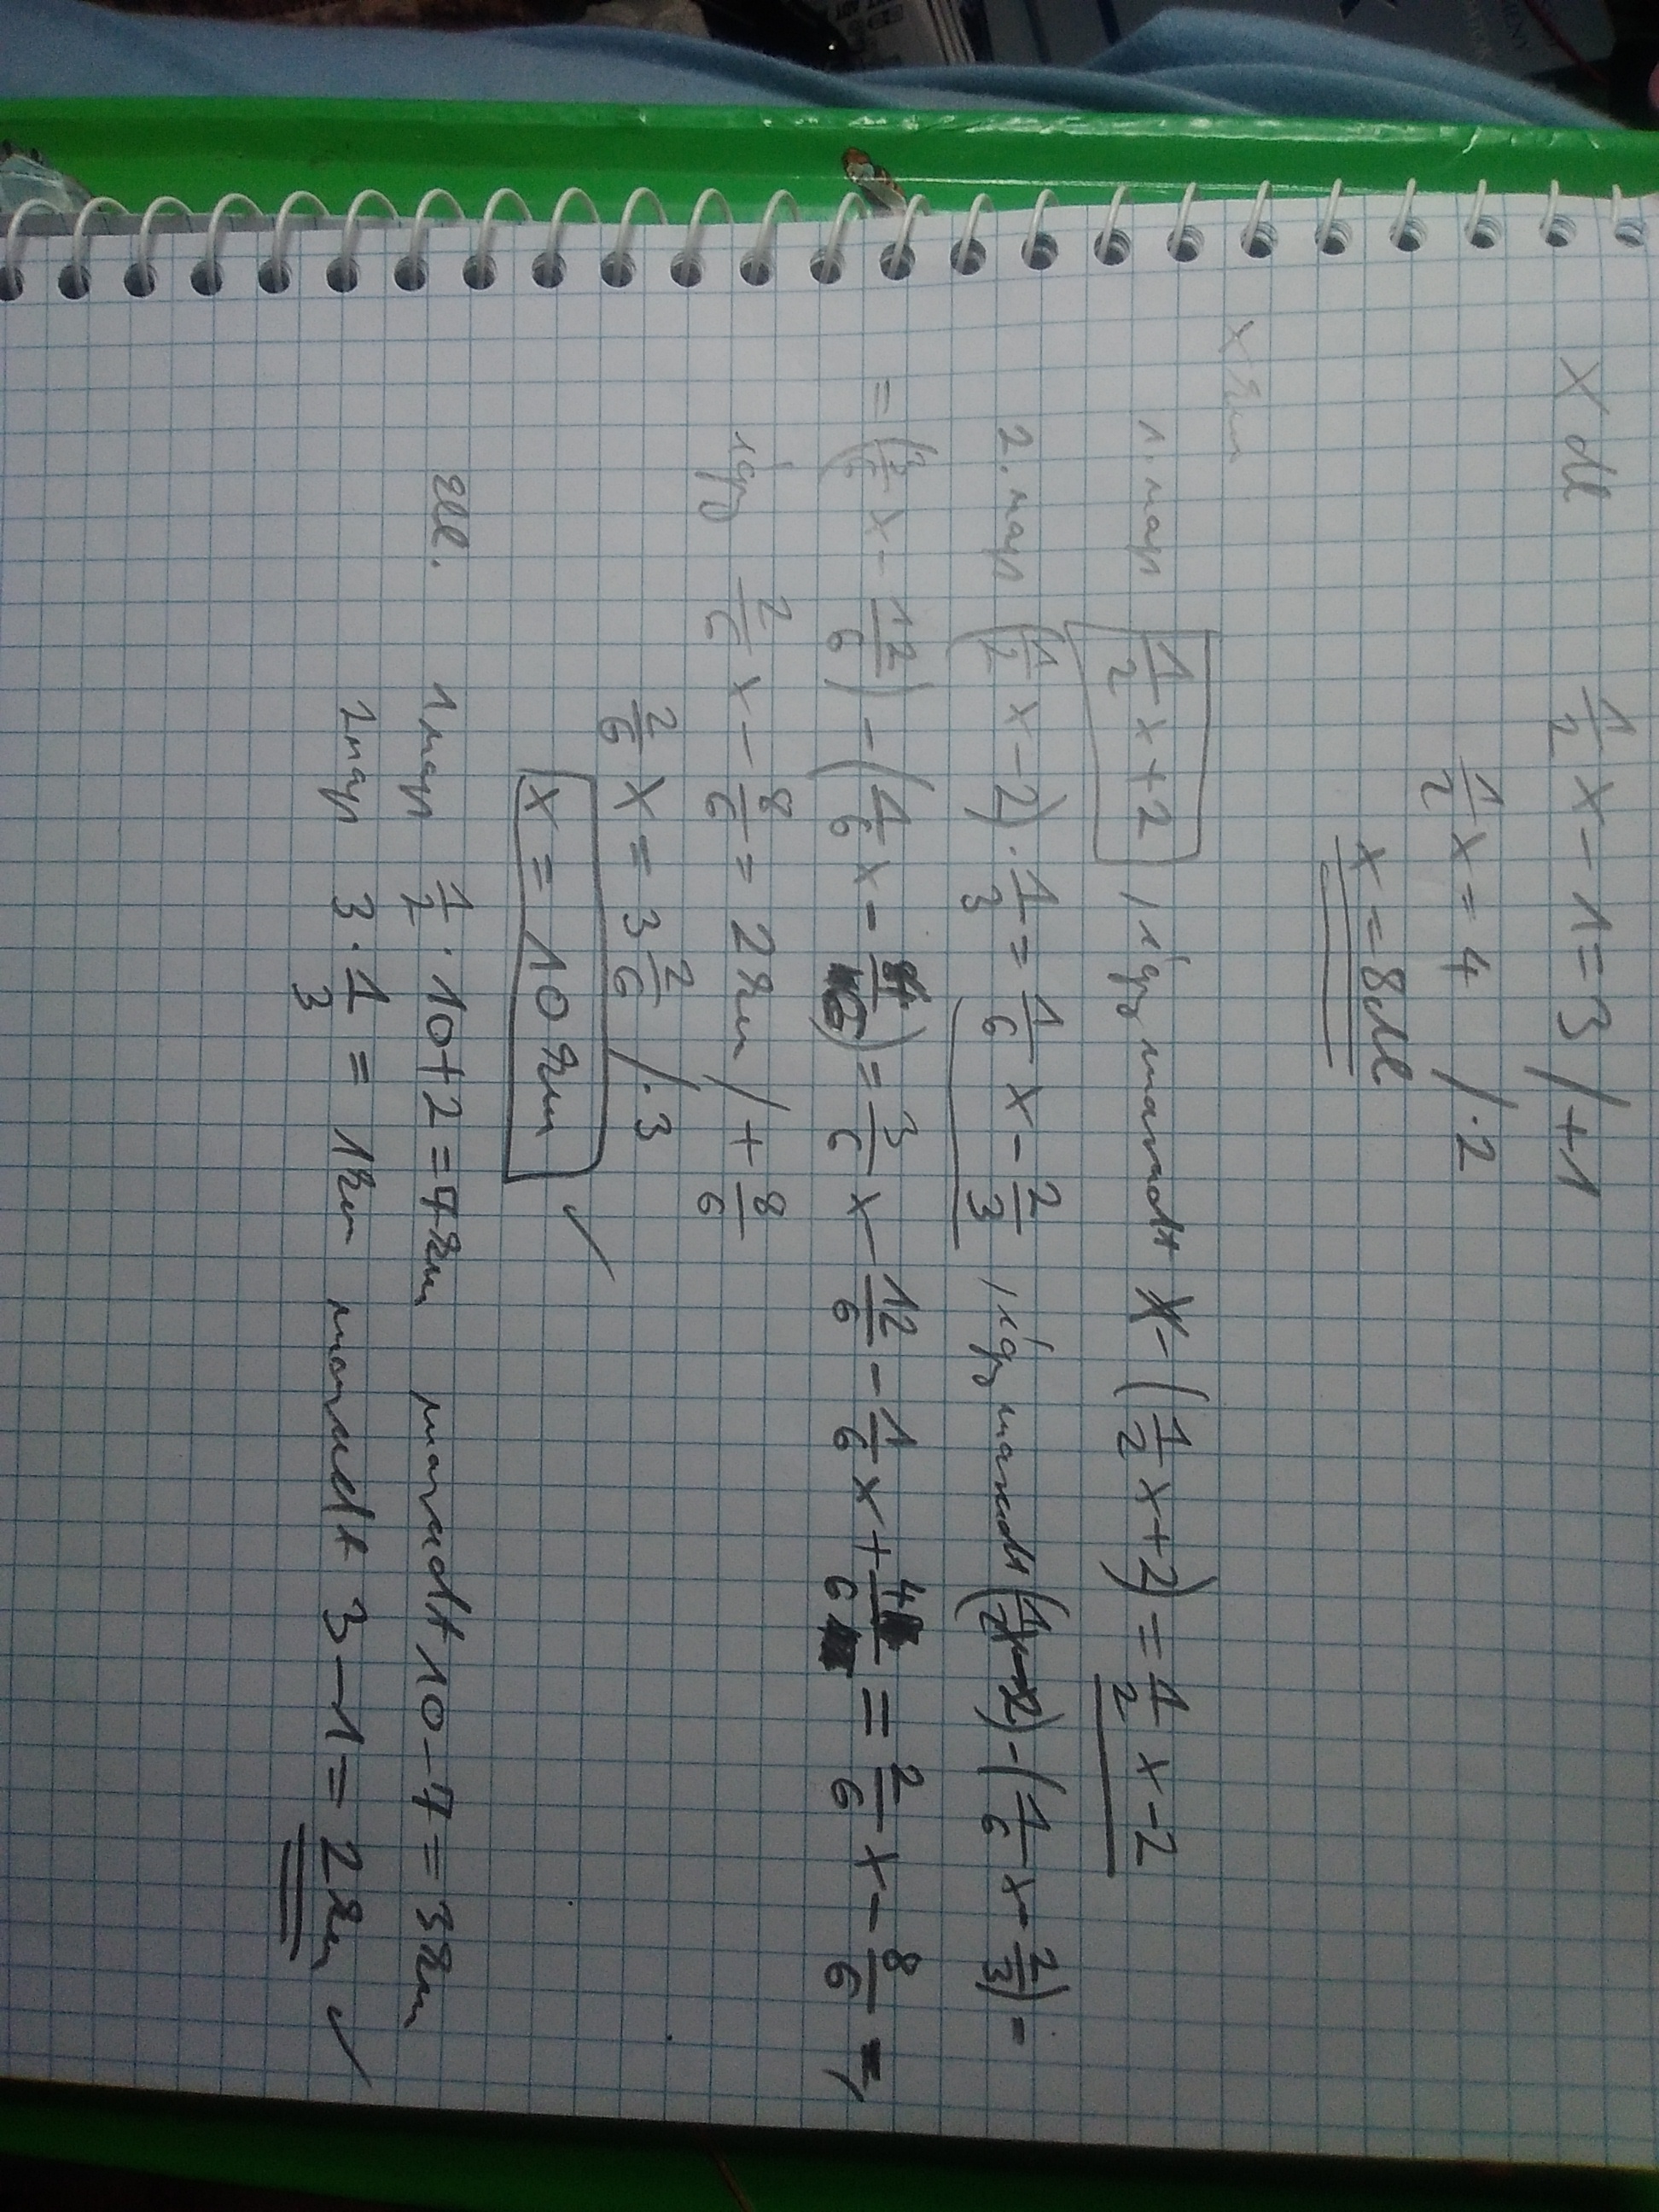 x dl 1/2 x - 1 = 3 / +1
1/2 x = 4 / · 2
x = 8dl
x km
1. nap 1/2 x + 2 / így maradt x - (1/2 x + 2) = 1/2 x - 2
2. nap (1/2 x - 2) · 1/3 = 1/6 x - 2/3 / így maradt (1/2 x - 2) - (1/6 x - 2/3) =
= (3/6 x - 12/6) - (1/6 x - 4/6) = 3/6 x - 12/6 - 1/6 x + 4/6 = 2/6 x - 8/6 =
így 2/6 x - 8/6 = 2 km / + 8/6
2/6 x = 3 2/6 / · 3
x = 10 km ✓
ell. 1 nap 1/2 · 10 + 2 = 7 km maradt 10 - 7 = 3 km
2 nap 3 · 1/3 = 1 km maradt 3 - 1 = 2 km ✓